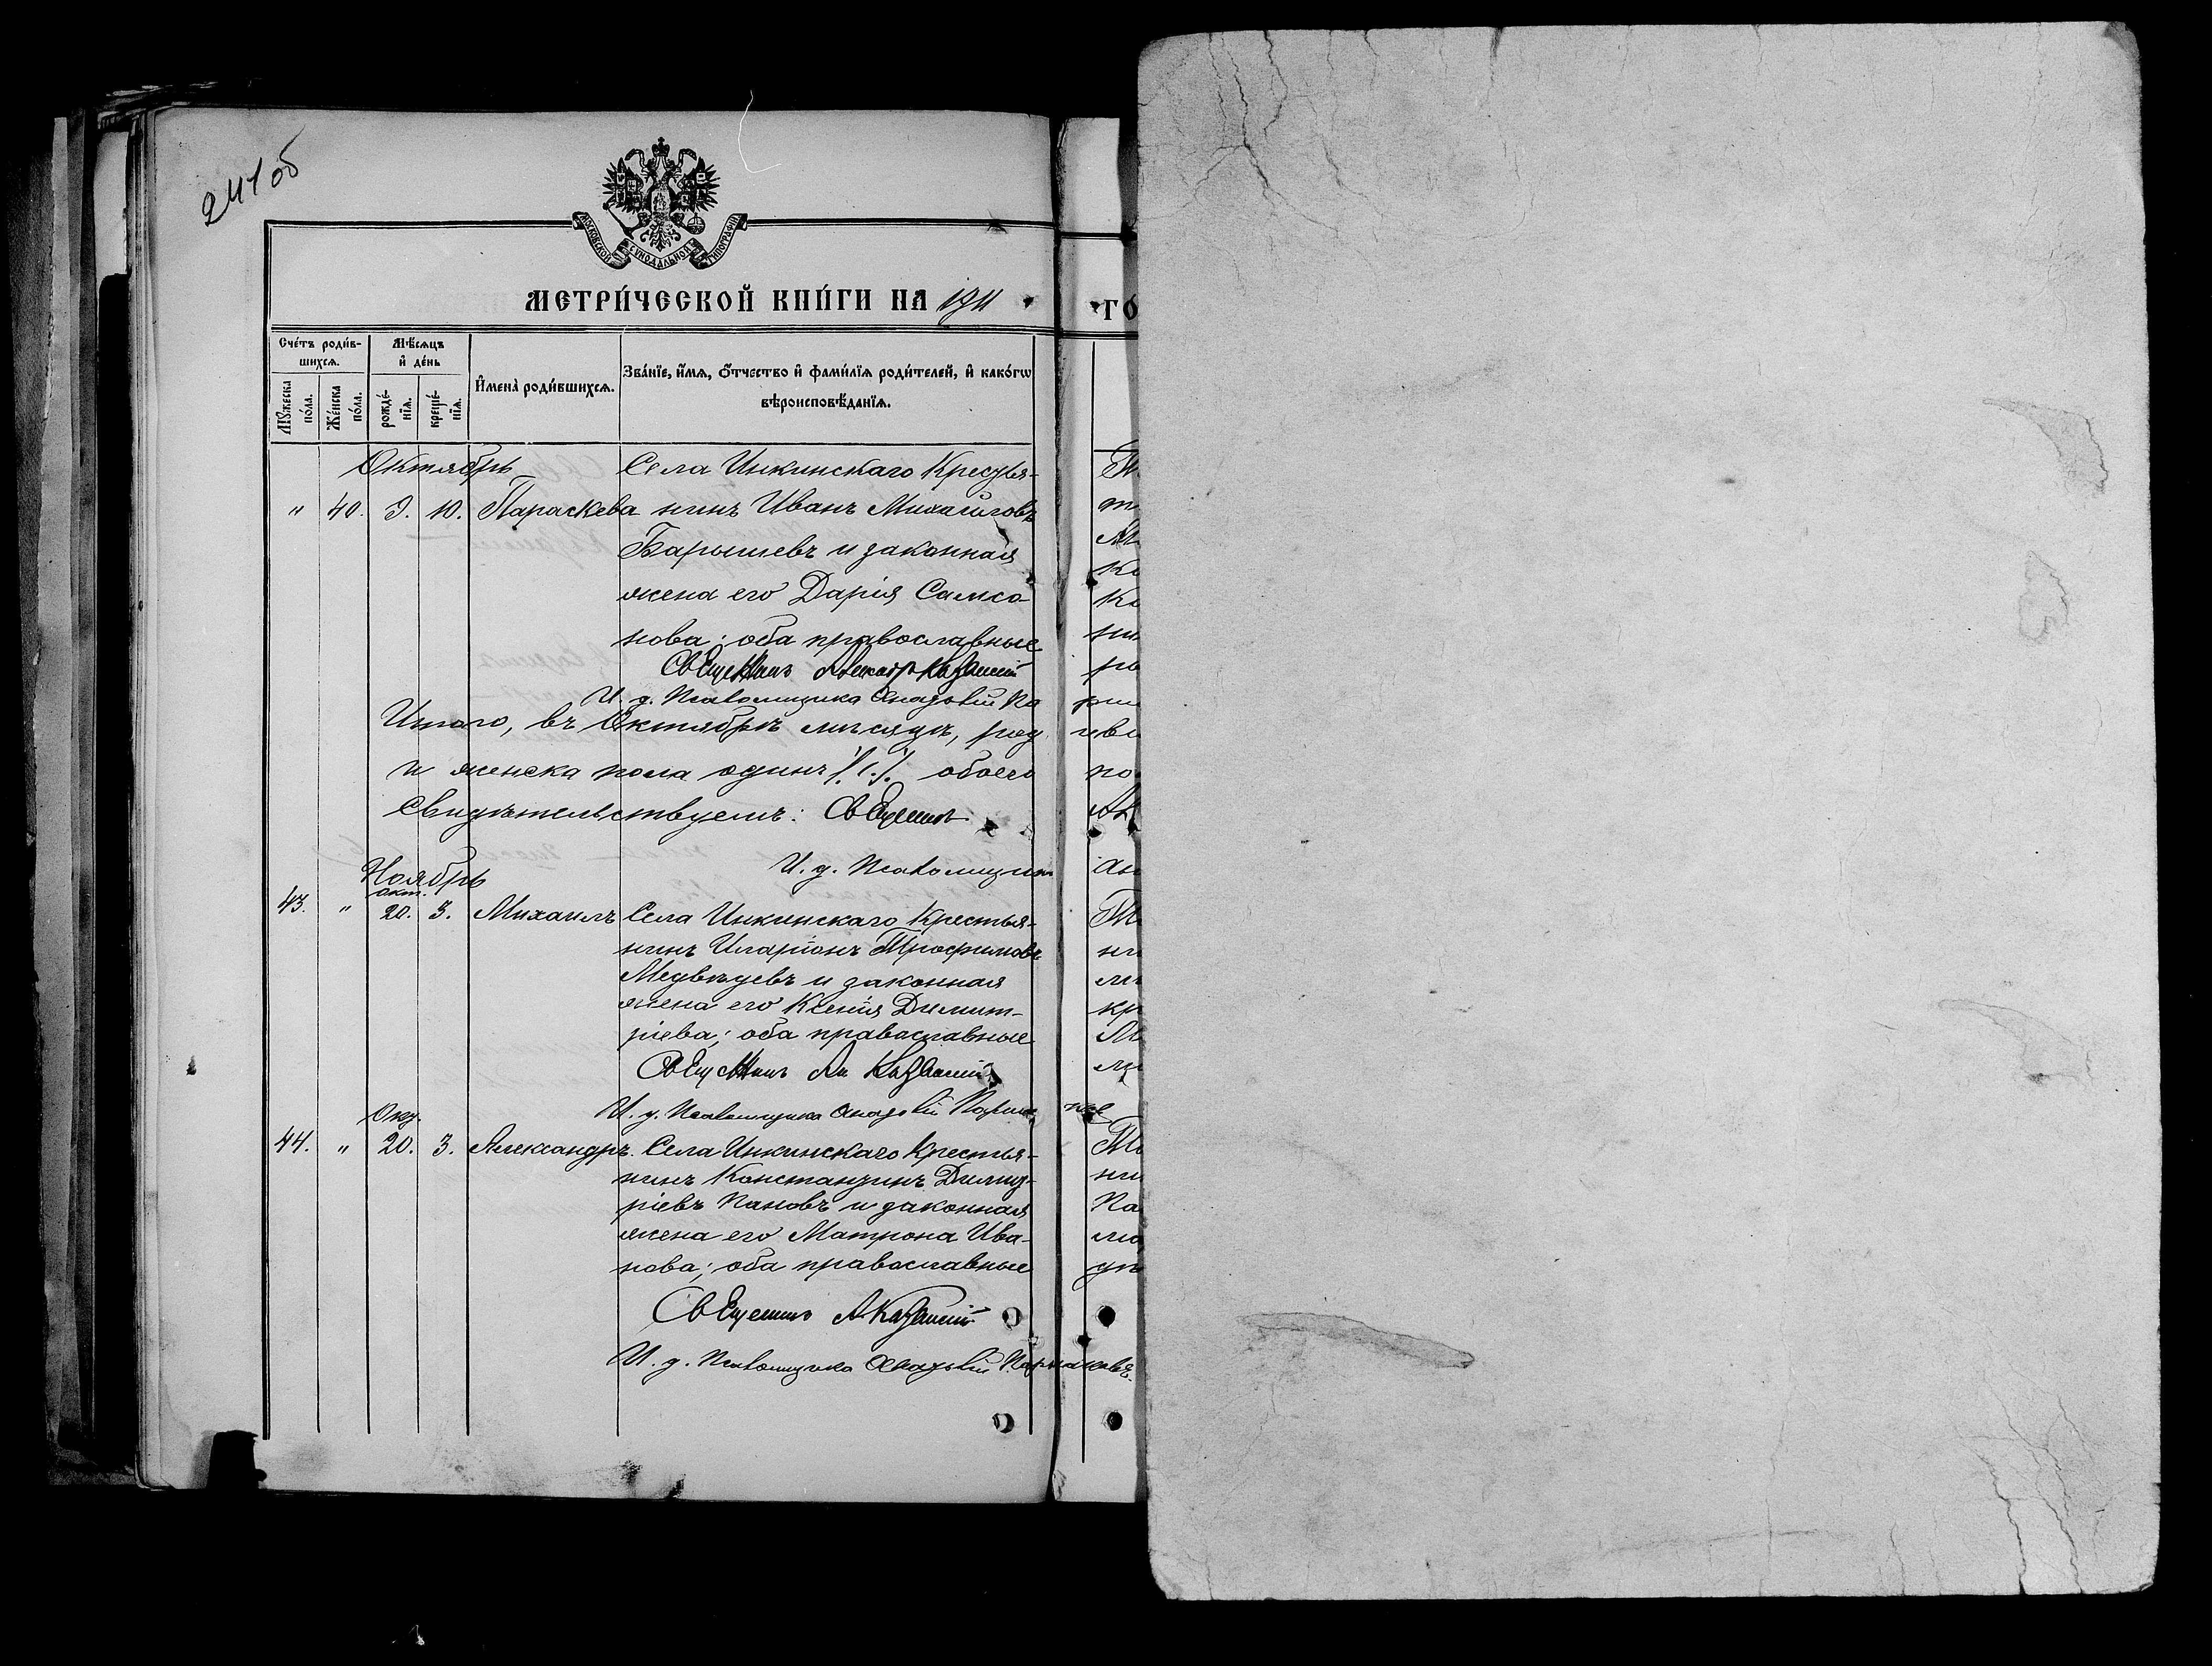 241 об
МОСКОВСКОЙ СѴНОДАЛЬНОЙ ТИПОГРАФІИ
МЕТРИ́ЧЕСКОЙ КНИ́ГИ НА 1911 ГО
Сче́тъ роди́в-
шихсѧ.
Мѣ́сѧцъ
и҆ де́нь
Мꙋ́жеска
по́ла.
Же́нска
по́ла.
рожде́-
нїѧ.
креще́-
нїѧ.
И҆мена̀ роди́вшихсѧ.
Зва́нїе, и҆́мѧ, ѻ҆́тчество и҆ фами́лїѧ роди́телей, и҆ како́гѡ
вѣроисповѣ́данїѧ.
Октябрь Села Инкинскаго Кресть-
" 40. 9. 10. Параскева нинъ Иванъ Михаиловъ
Барышевъ и законная
жена его Дарія Самсо-
нова; оба православные
Священникъ Александръ Казанскій
И. д. Псаломщика Аркадій Па
Итого, въ Октябрѣ мѣсяцѣ, род
и женска пола одинъ /1./ обоего
свидѣтельствуемъ: Священникъ
И. д. Псаломщик
Ноябрь
окт.
43. " 20. 3. Михаилъ Села Инкинскаго Крестья-
нинъ Иларіонъ Трофимовъ
Медвѣдевъ и законная
жена его Ксенія Димит-
ріева; оба православные
Священникъ Ал Казанскій
И. д. Псаломщика Аркадій
Окт.
44. " 20. 3. Александръ. Села Инкинскаго Крестья-
нинъ Константинъ Димит-
ріевъ Пановъ и законная
жена его Матрона Ива-
нова; оба православные
Священникъ А. Казанскій
И. д. Псаломщика Аркадій